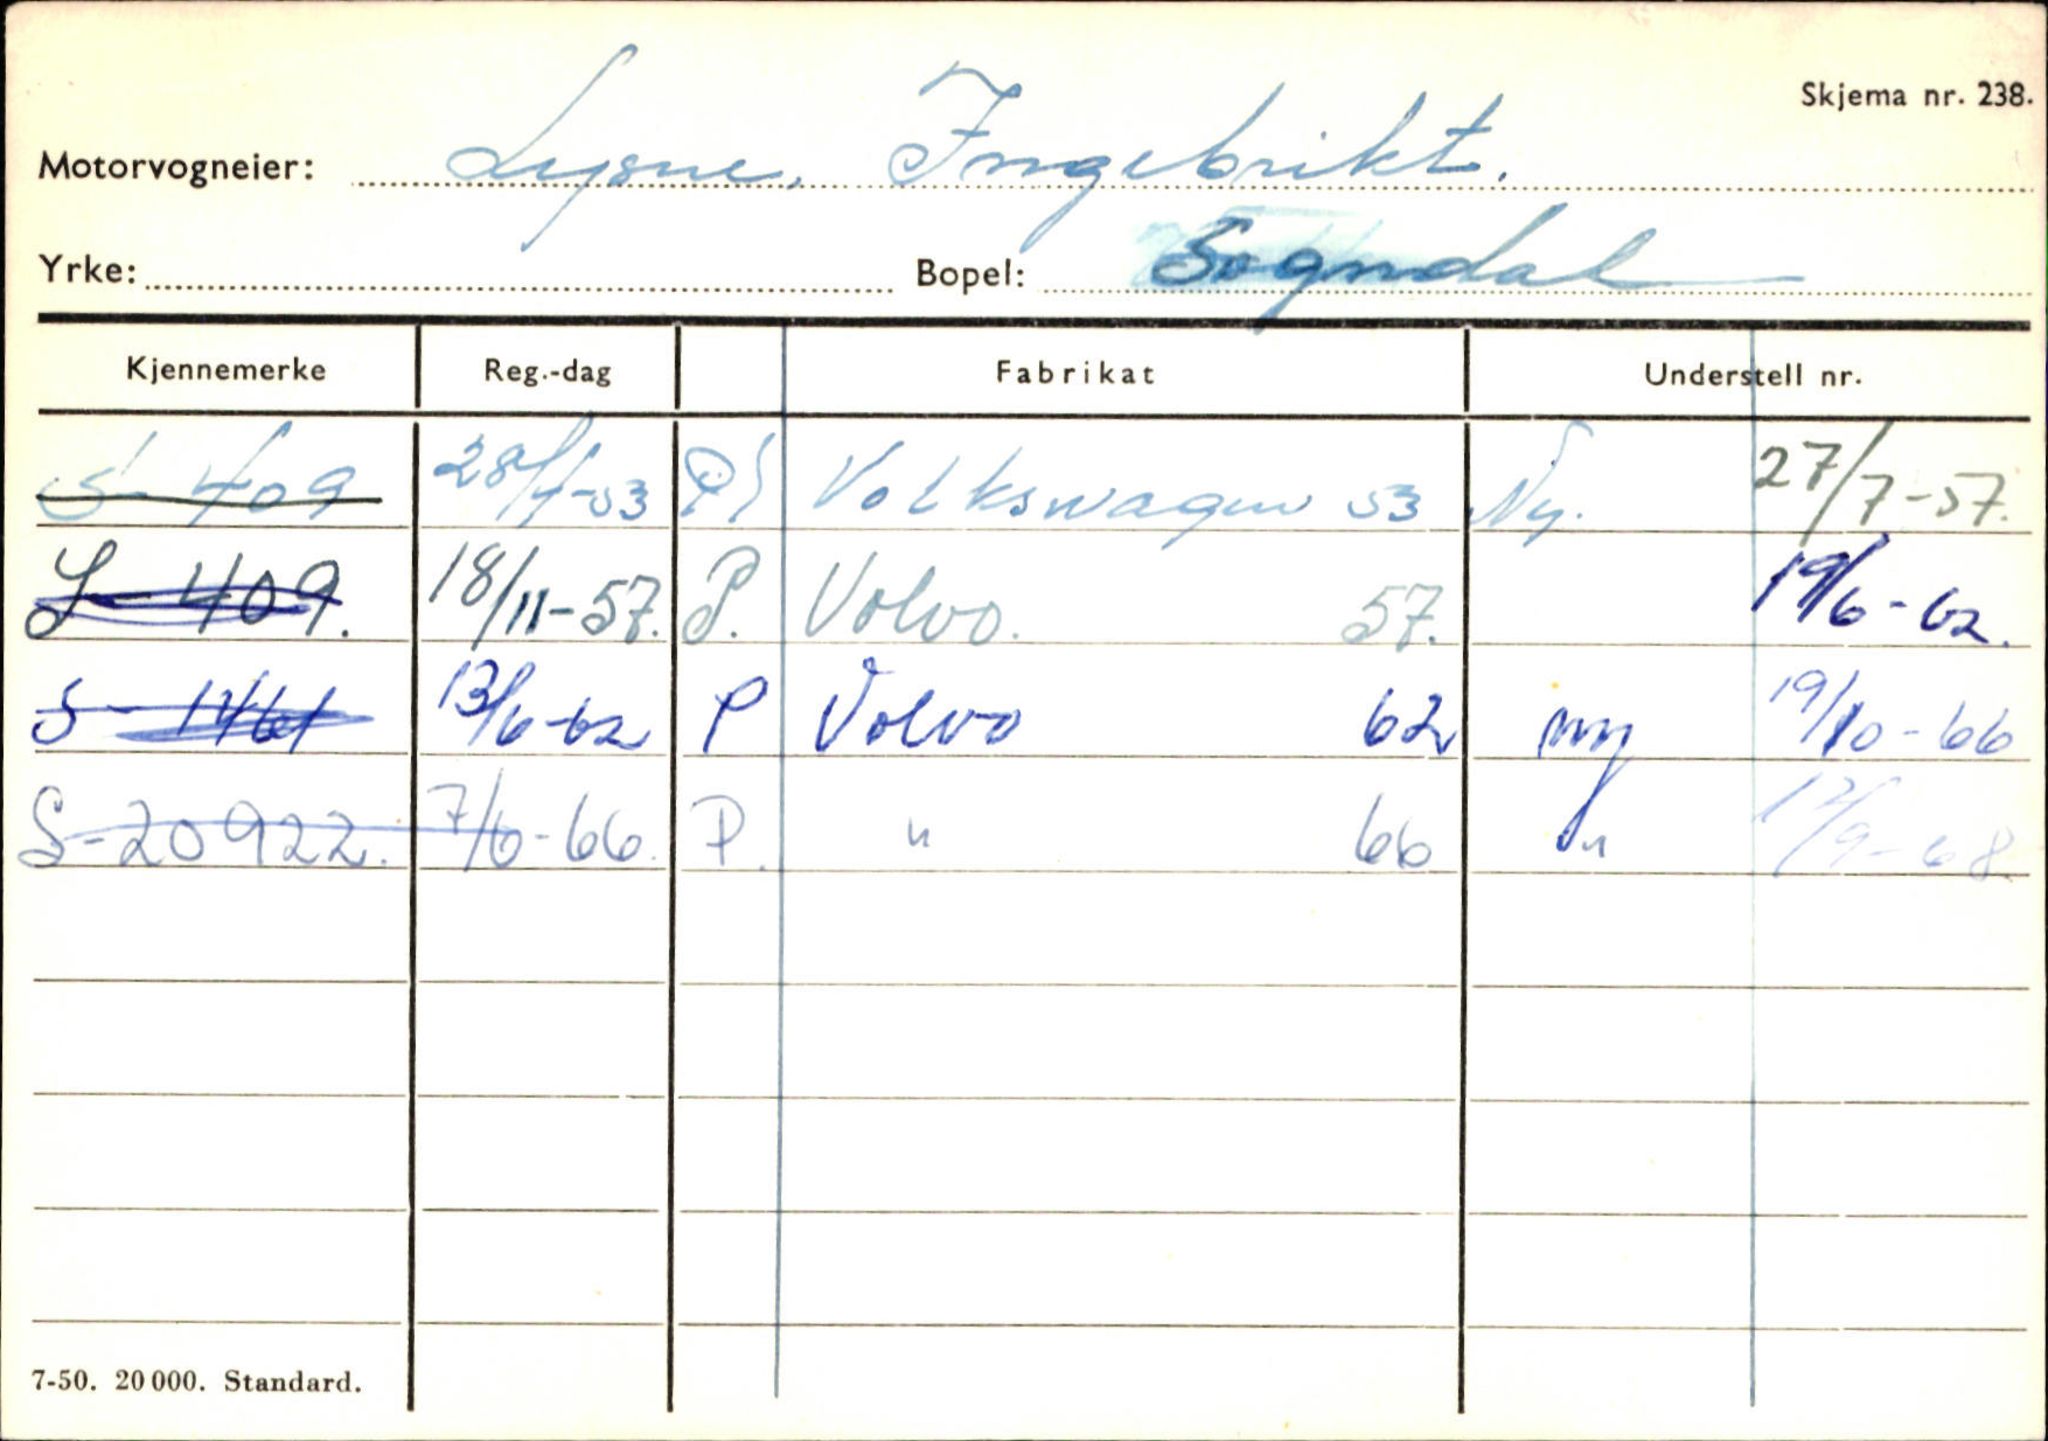 Skjema nr. 238.
Motorvogneier: Lysne, Ingebrikt.
Yrke: Bopel: Sogndal
Kjennemerke Reg.-dag Fabrikat Understell nr.
S-409 28/4-53 P Volkswagen 53 Ny. 27/7-57.
S-409. 18/11-57. P. Volvo. 57. 19/6-62.
S-1461 13/6-62 P Volvo 62 ny 19/10-66
S-20922. 7/6-66. P. " 66 " 12/9-68.
7-50. 20 000. Standard.